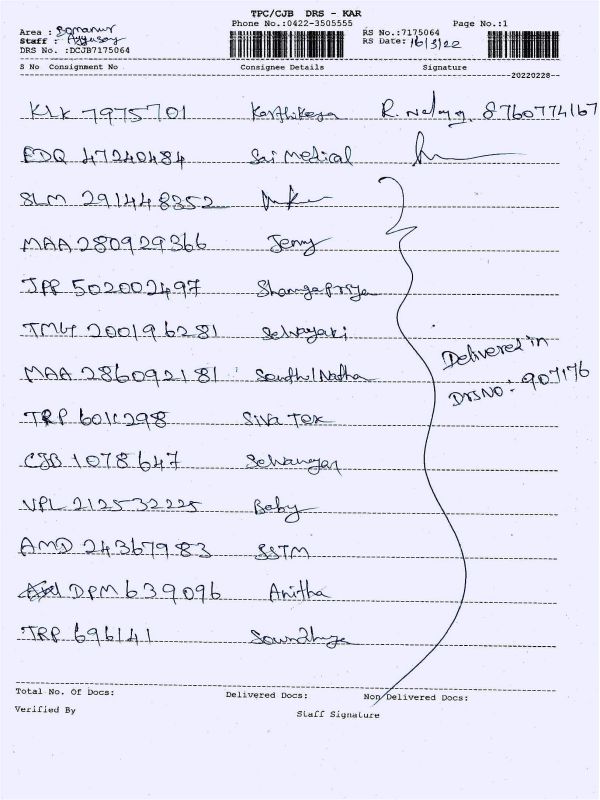 TPC/CJB DRS - KAR
Phone No.:0422-3505555 Page No.:1
Area : Somanur
Staff : Ayyusay
RS No.:7175064
RS Date: 16/3/22
DRS No. :DCJB7175064
S No Consignment No Consignee Details Signature
20220228
KLK 7975701 Karthikeya R. 8760774167
EDQ 47240484 Sai Medical
SLM 291448352
MAA 280929366 Jenny
JPP 502002497 Shangapriya
TMG 200196281 Selvayaki
MAA 286092181 Senthil Natha
Delivered in
DRS NO: 907176
TRP 6011298 Siva Tex
CJB 1078647 Selvanayar
VPL 212532225 Baby
AMD 24367983 SSTM
DPM 639096 Anitha
TRP 696141 Soundhya
Total No. Of Docs: Delivered Docs: Non Delivered Docs:
Verified By Staff Signature